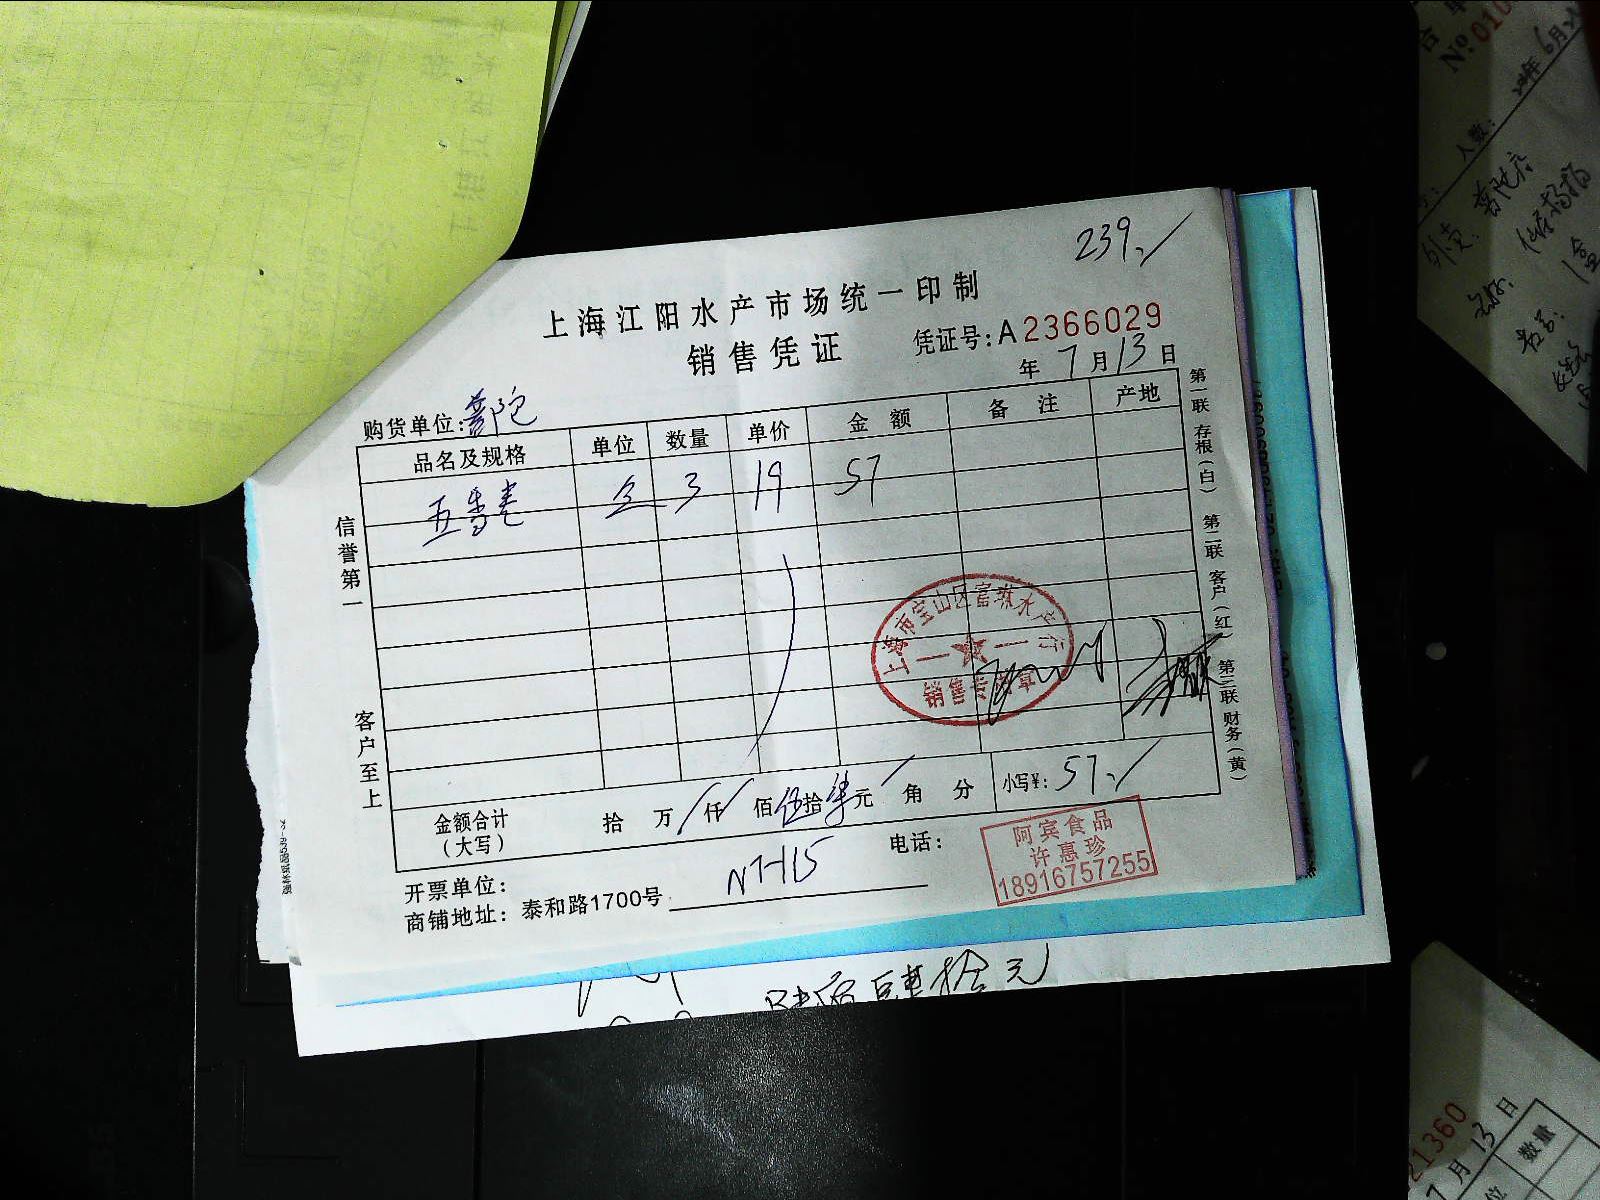 239./
上海江阳水产市场统一印制
销售凭证
凭证号:A2366029
年 7月13日
购货单位:普陀
品名及规格 单位 数量 单价 金额 备注 产地
五香卷 盒 3 19 57
信誉第一
客户至上
第一联 存根(白) 第二联 客户(红) 第三联 财务(黄)
上海市宝山区富琳水产行
销售专用章
金额合计(大写) 拾 万 仟 佰 伍拾柒元 角 分 小写¥: 57./
开票单位:
电话:
商铺地址: 泰和路1700号 NT-115
阿宾食品
许惠珍
18916757255
拾元
No
6月
人数:
外卖:
1盒
21360
7月13日
数量
位